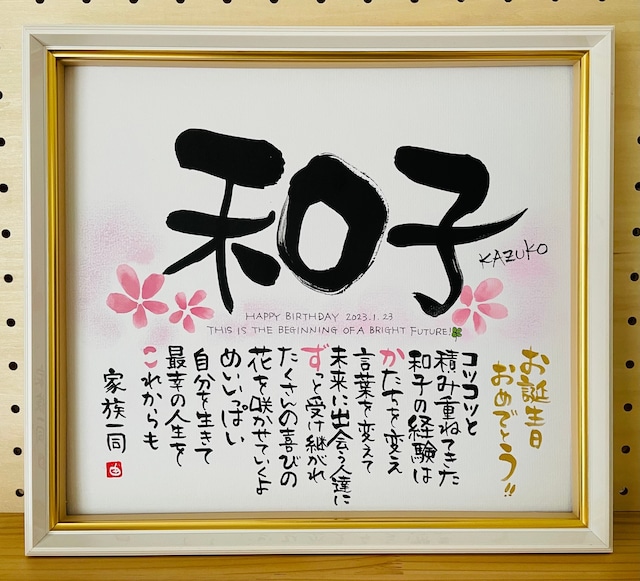 和子
KAZUKO
HAPPY BIRTHDAY 2023.1.23
THIS IS THE BEGINNING OF A BRIGHT FUTURE!
お誕生日
おめでとう!!
コツコツと
積み重ねてきた
和子の経験は
かたちを変え
言葉を変えて
未来に出会う人達に
ずっと受け継がれ
たくさんの喜びの
花を咲かせていくよ
めいいっぱい
自分を生きて
最幸の人生を
これからも
家族一同